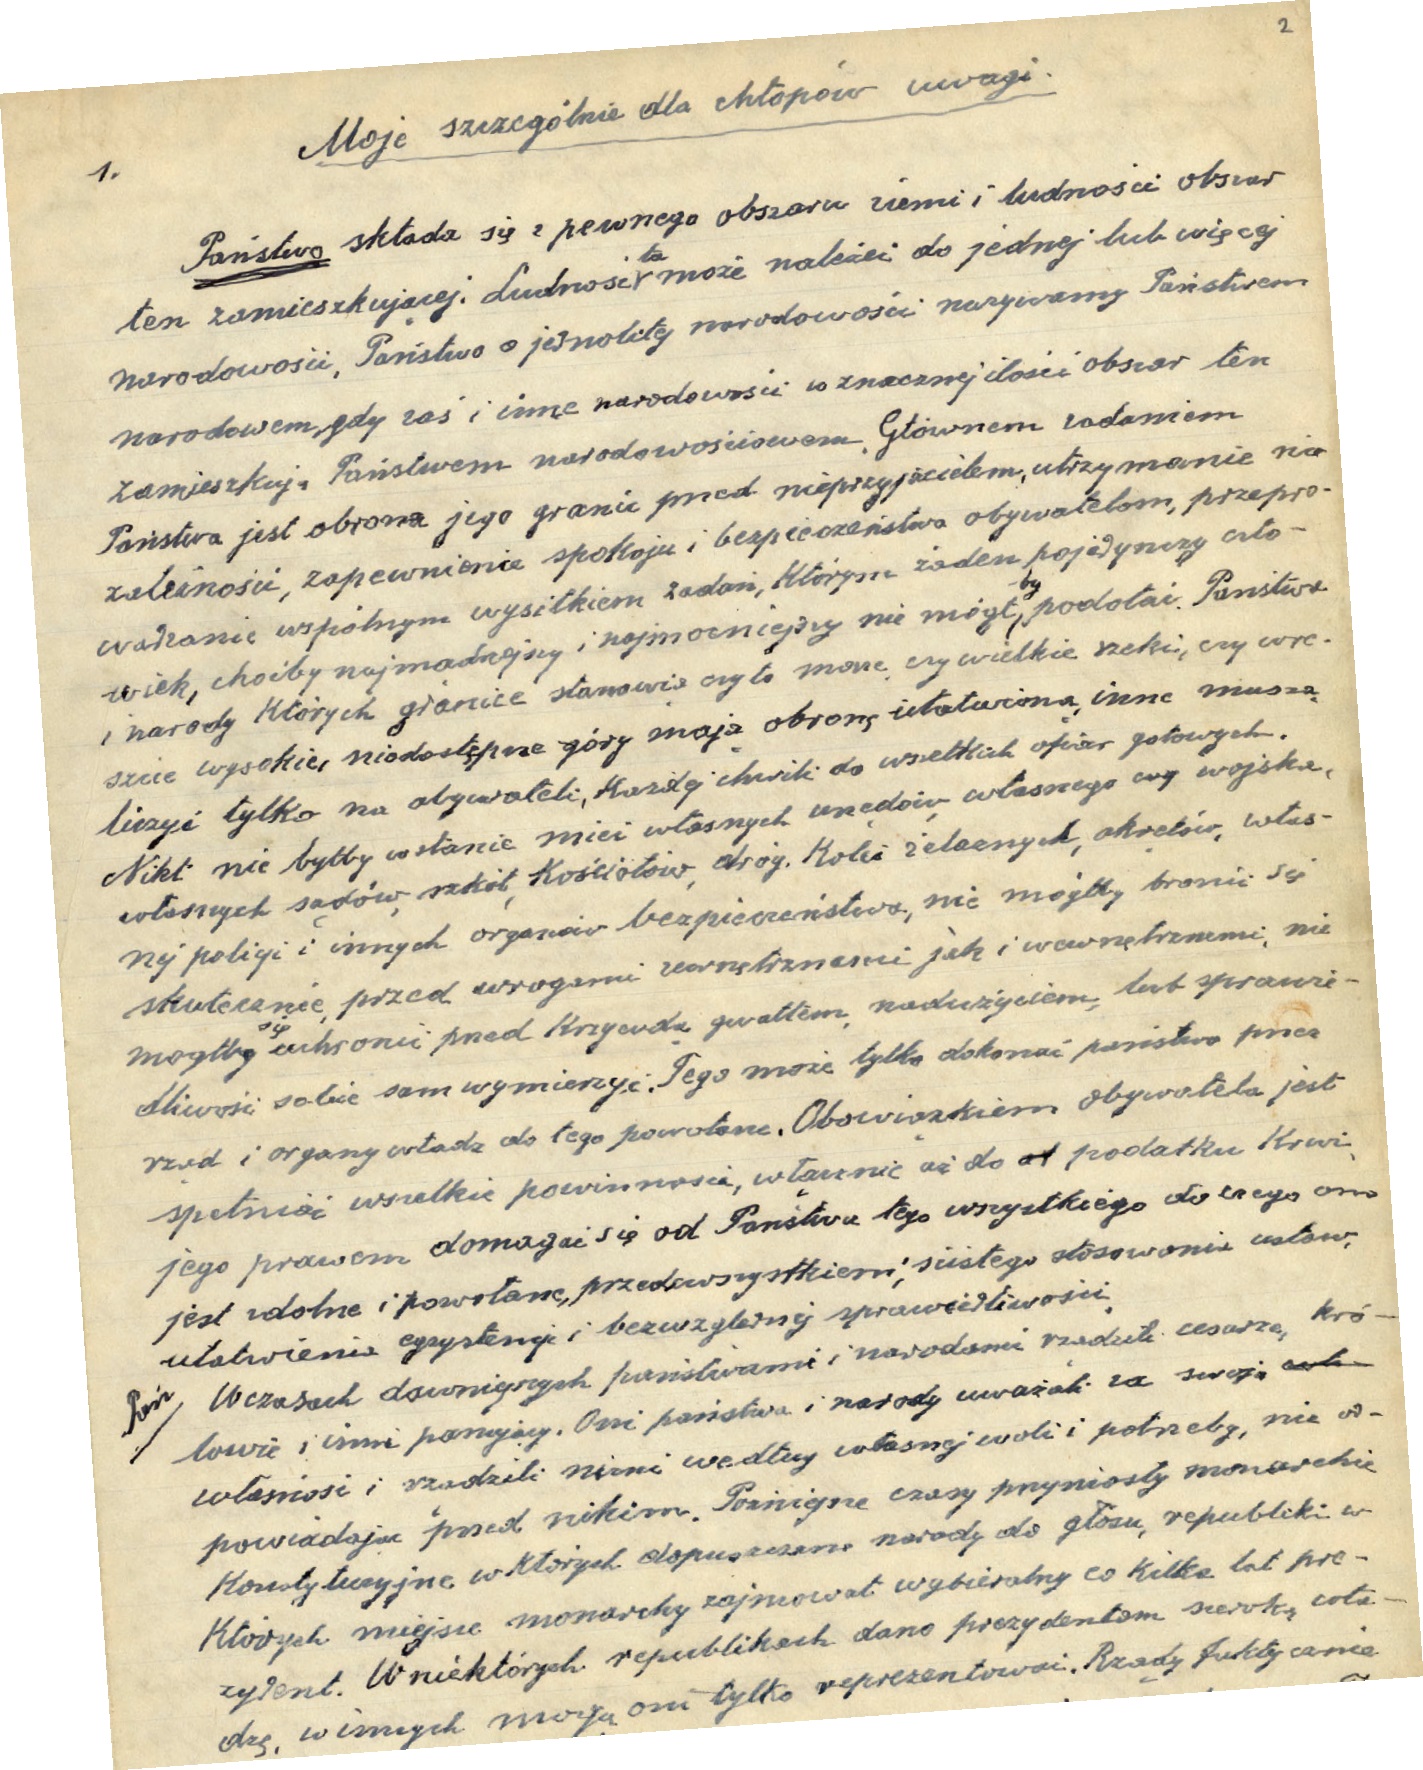 2
Moje szczególnie dla chłopów uwagi.
1.
Państwo składa się z pewnego obszaru ziemi i ludności obszar
ten zamieszkującej. Ludność ta może należeć do jednej lub więcej
narodowości, Państwo o jednolitej narodowości nazywamy Państwem
narodowem, gdy zaś i inne narodowości w znacznej ilości obszar ten
zamieszkują Państwem narodowościowem. Głównem zadaniem
Państwa jest obrona jego granic przed nieprzyjacielem, utrzymanie nie
zależności, zapewnienie spokoju i bezpieczeństwa obywatelom, przepro-
wadzanie wspólnym wysiłkiem zadań, którym żaden pojedynczy czło-
wiek, choćby najmądrzejszy i najmocniejszy nie mógł by podołać. Państwa
i narody których granice stanowią czy to morze, czy wielkie rzeki, czy wre-
szcie wysokie, niedostępne góry mają obronę ułatwioną, inne muszą
liczyć tylko na obywateli, każdej chwili do wszelkich ofiar gotowych.
Nikt nie byłby wstanie mieć własnych urzędów, własnego czy wojska,
własnych sądów, szkół, kościołów, dróg. Kolei żelaznych, okrętów, włas-
nej policji i innych organów bezpieczeństwa, nie mógłby bronić się
skutecznie, przed wrogami zewnętrznemi jak i wewnętrznemi, nie
mogłby się uchronić przed krzywdą gwałtem, nadużyciem, lub sprawie-
dliwość sobie sam wymierzyć. Tego może tylko dokonać państwo przez
rząd i organy władz do tego powołane. Obowiązkiem obywatela jest
spełniać wszelkie powinności, włącznie aż do podatku krwi,
jego prawem domagać się od Państwa tego wszystkiego do czego ono
jest zdolne i powołane, przedewszystkiem, ścisłego stosowania ustaw,
ułatwienia egzystencji i bezwzględnej sprawiedliwości.
Pań/ W czasach dawniejszych państwami i narodami rządzili cesarze, kró-
lowie i inni panujący. Oni państwa i narody uważali za swoją
własność i rządzili niemi według własnej woli i potrzeby, nie od-
powiadając przed nikim. Późniejsze czasy przyniosły monarchie
Konstytucyjne w których dopuszczano narody do głosu, republiki w
których miejsce monarchy zajmował wybieralny co kilka lat pre-
zydent. W niektórych republikach dano prezydentom szeroką wła-
dzę, w innych mogą oni tylko reprezentować. Rządy faktycznie